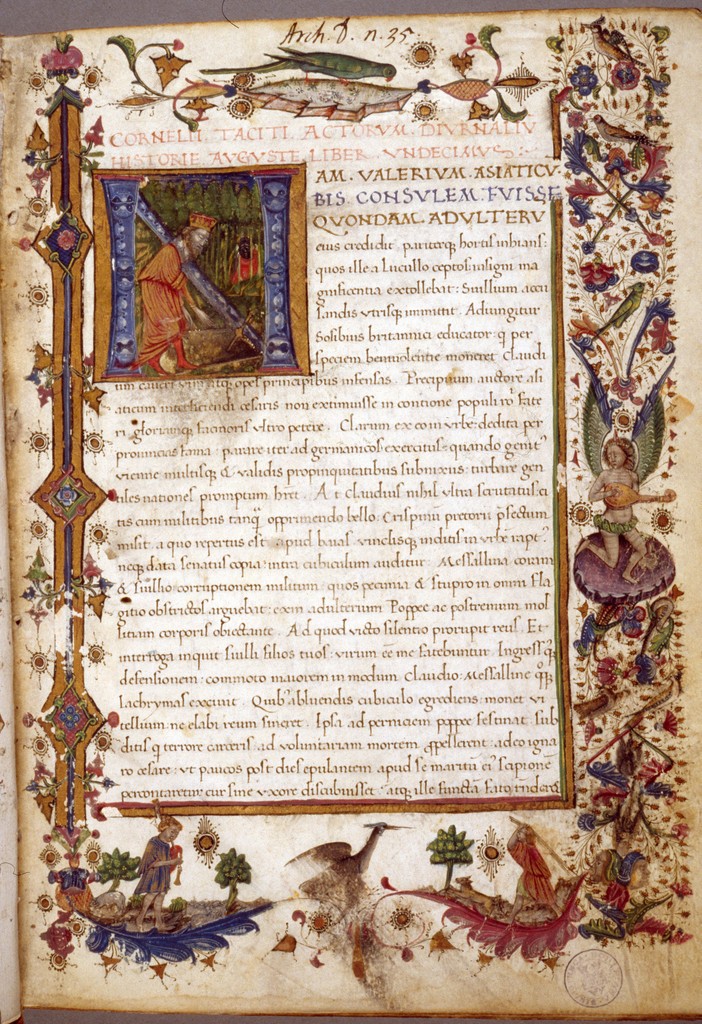 Arch. D. n. 35
CORNELII TACITI ACTORVM DIVRNALIV
HISTORIE AVGVSTE LIBER VNDECIMVS :
AM. VALERIVM. ASIATICV
BIS. CONSVLEM. FVISSE
QVONDAM. ADVLTERV
eius credidit pariterq; hortis inhians:
quos ille a Lucullo ceptos insigni ma
gnificentia extollebat: Suillium accu
sandis utrisq; immittit. Adiungitur
Sosibius britannici educator q per
speciem beniuolentie moneret Claudi
um cauere opes principibus infensas. Precipuum auctorē asi
aticum interficiendi cesaris non extimuisse in contione populi ro fate
ri gloriamq; facinoris vltro petere. Clarum ex eo in vrbe: dedita per
prouincias fama: parare iter ad germanicos exercitus: quando genit'
vienne multisq; & validis propinquitatibus subnixus: turbare gen
tiles nationes promptum hret. At Claudius nihil vltra scrutatus: ci
tis cum militibus tanq; opprimendo bello: Crispinū pretorii p̄fectum
misit. a quo repertus est apud baias vinclisq; inditis in vrbē rapt'.
neq; data senatus copia: intra cubiculum auditur. Messallina coram
& Suilho corruptionem militum: quos pecunia & stupro in omni fla
gitio obstrictos arguebat: exin adulterium Poppee ac postremum mol
litiam corporis obiectante. Ad quod victo silentio prorupit reus. Et
interroga inquit Suilli filios tuos: virum eē me fatebuntur. Ingressq;
defensionem: commoto maiorem in modum Claudio: Messalline qq;
lachrymas exciuit. Quib' abluendis cubiculo egrediens: monet vi
tellium ne elabi reum sineret. Ipsa ad perniciem poppee festinat sub
ditis q terrore carceris ad voluntariam mortem ꝓpellerent: adeo igna
ro cesare: vt paucos post dies epulantem apud se maritū ei' scipionē
percontaretur cur sine vxore discubuisset: atq; ille functā fato rn̄deret